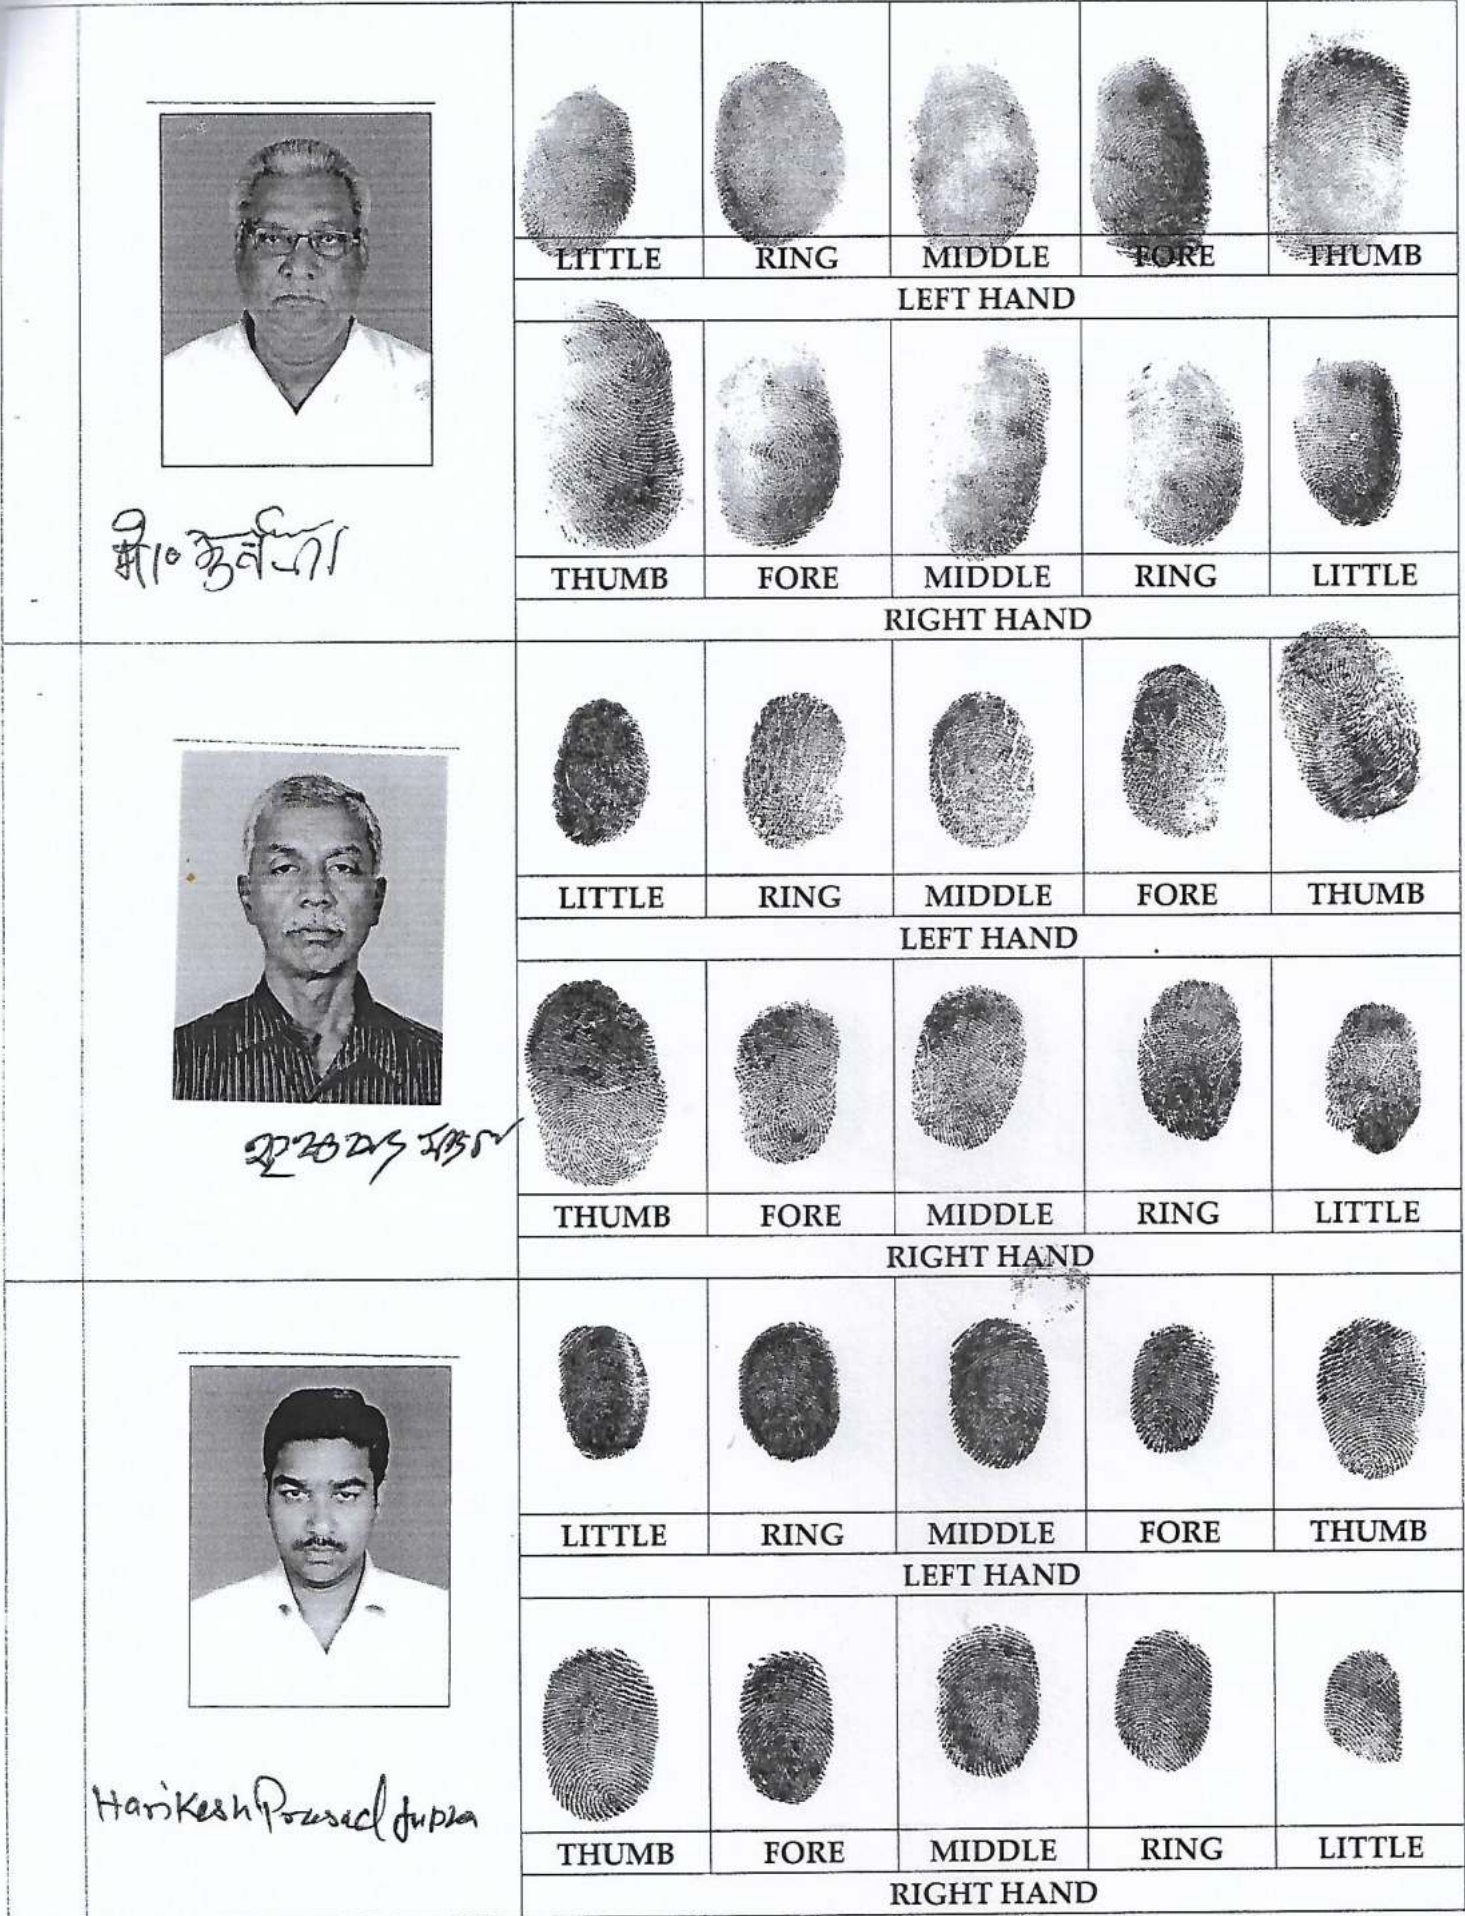 LITTLE RING MIDDLE FORE THUMB
LEFT HAND
मो०
THUMB FORE MIDDLE RING LITTLE
RIGHT HAND
LITTLE RING MIDDLE FORE THUMB
LEFT HAND
THUMB FORE MIDDLE RING LITTLE
RIGHT HAND
LITTLE RING MIDDLE FORE THUMB
LEFT HAND
Harikesh Prasad Gupta
THUMB FORE MIDDLE RING LITTLE
RIGHT HAND